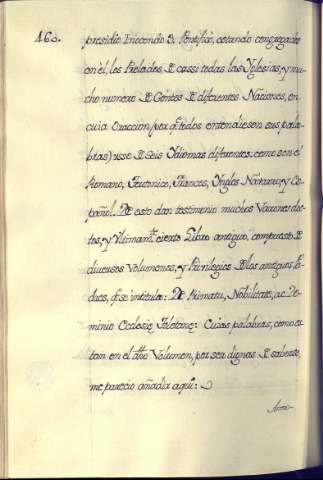 160.
presidio Inocencio 3. Pontifice, estando congregados
en él, los Prelados de cassi todas las Yglesias, y mu-
cho numero de Gentes de diferentes Naciones, en
cuia Oraccion, per q.e todos entendiesen sus pala-
bras) usse de seis Ydiomas diferentes: como son el
Romano, Teutonico, Frances, Yngles Navarro, y Es-
pañol. De esto dan testimonio muchos Varones doc-
tos, y Ultimam.te cierto Libro antiguo, compuesto de
diversos Volumenes, y Privilegios de los antiguos Pa-
dres, q.e se intitula: De Primatu, Nobilitate, ac Do-
minio Ecclesię Toletanę: Cuias palabras, como es-
tan en el dho Volumen, per ser dignas de saberse,
me parecio añadir aqui: